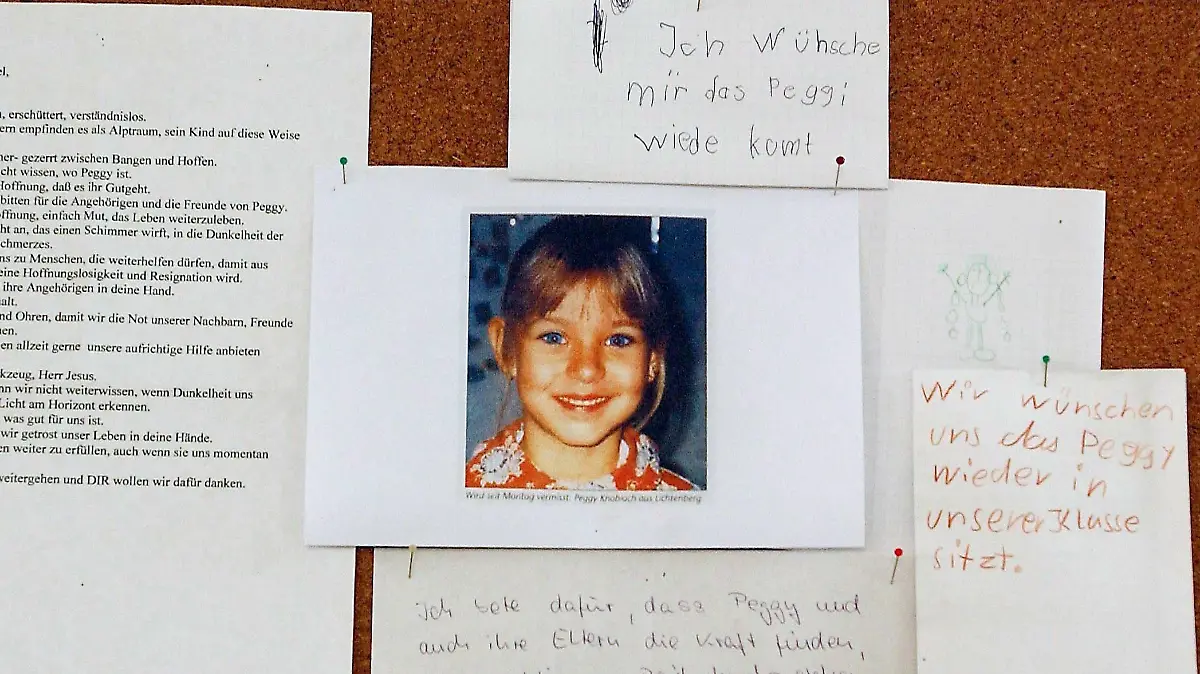 el,
, erschüttert, verständnislos.
ern empfinden es als Alptraum, sein Kind auf diese Weise
ner- gezerrt zwischen Bangen und Hoffen.
cht wissen, wo Peggy ist.
Hoffnung, daß es ihr Gutgeht.
bitten für die Angehörigen und die Freunde von Peggy.
ffnung, einfach Mut, das Leben weiterzuleben.
ht an, das einen Schimmer wirft, in die Dunkelheit der
chmerzes.
ns zu Menschen, die weiterhelfen dürfen, damit aus
eine Hoffnungslosigkeit und Resignation wird.
ihre Angehörigen in deine Hand.
alt.
nd Ohren, damit wir die Not unserer Nachbarn, Freunde
nen.
en allzeit gerne unsere aufrichtige Hilfe anbieten
kzeug, Herr Jesus.
nn wir nicht weiterwissen, wenn Dunkelheit uns
Licht am Horizont erkennen.
was gut für uns ist.
wir getrost unser Leben in deine Hände.
en weiter zu erfüllen, auch wenn sie uns momentan
weitergehen und DIR wollen wir dafür danken.
Ich wühsche
mir das Peggi
wiede komt
Wird seit Montag vermisst: Peggy Knobloch aus Lichtenberg
Wir wünschen
uns das Peggy
wieder in
unserer Klasse
sitzt.
Ich bete dafür, dass Peggy und
auch ihre Eltern die Kraft finden,